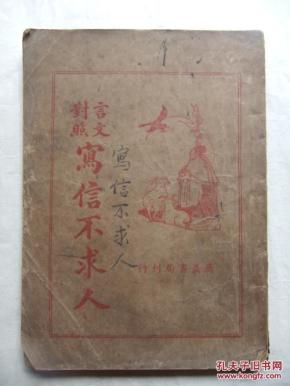 言文
對照
寫信不求人
寫信不求人
書局刊行
孔夫子旧书网